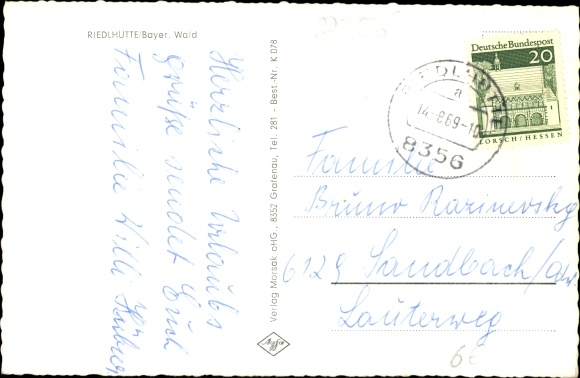 RIEDLHÜTTE/Bayer. Wald
Herzliche Urlaubs
grüße sendet Euch
Familie Willi
Verlag Morsak oHG., 8352 Grafenau, Tel. 281 - Best.-Nr. K 078
Deutsche Bundespost
20
LORSCH/HESSEN
RIEDLHÜTTE
a
14.-8.69-10
8356
Familie
Bruno Rarinevsky
6129 Sandbach/
Lauterweg
6€